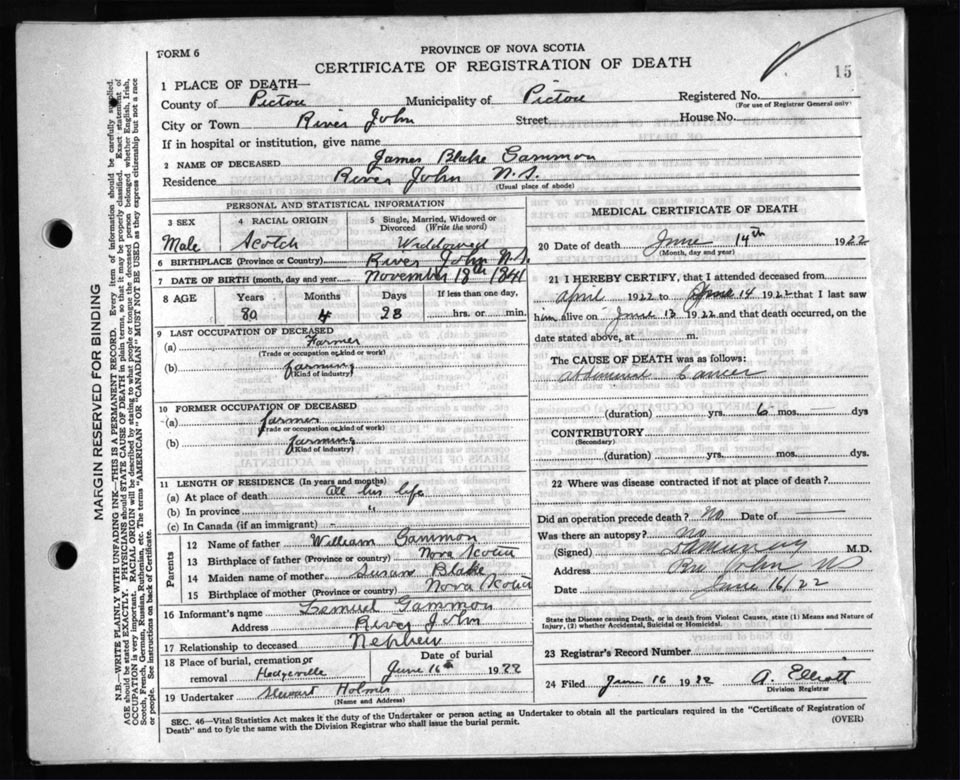 FORM 6
PROVINCE OF NOVA SCOTIA
CERTIFICATE OF REGISTRATION OF DEATH
15
1 PLACE OF DEATH—
County of Pictou Municipality of Pictou Registered No.
(For use of Registrar General only)
City or Town River John Street House No.
If in hospital or institution, give name
2 NAME OF DECEASED James Blake Gammon
Residence River John N.S.
(Usual place of abode)
PERSONAL AND STATISTICAL INFORMATION
3 SEX 4 RACIAL ORIGIN 5 Single, Married, Widowed or Divorced (Write the word)
Male Scotch Widdowed
6 BIRTHPLACE (Province or Country) River John N.S.
7 DATE OF BIRTH (month, day and year) November 18th 1841
8 AGE Years Months Days If less than one day,
80 4 28 hrs. or min.
9 LAST OCCUPATION OF DECEASED
(a) Farmer
(Trade or occupation or kind or work)
(b) farming
(Kind of industry)
10 FORMER OCCUPATION OF DECEASED
(a) farmer
(Trade or occupation or kind or work)
(b) farming
(Kind of industry)
11 LENGTH OF RESIDENCE (In years and months)
(a) At place of death all his life
(b) In province "
(c) In Canada (if an immigrant) -
Parents
12 Name of father William Gammon
13 Birthplace of father (Province or country) Nova Scotia
14 Maiden name of mother Susan Blake
15 Birthplace of mother (Province or country) Nova Scotia
16 Informant's name Lemuel Gammon
Address River John
17 Relationship to deceased Nephew
18 Place of burial, cremation or removal Hodgeville Date of burial June 16th 1922
19 Undertaker Stewart Holmes
(Name and Address)
MEDICAL CERTIFICATE OF DEATH
20 Date of death June 14th 1922
(Month, day and year)
21 I HEREBY CERTIFY, that I attended deceased from
April 1922 to June 14 1922 that I last saw
him alive on June 13 1922 and that death occurred, on the
date stated above, at m.
The CAUSE OF DEATH was as follows:
abdominal Cancer
(duration) yrs. 6 mos. dys
CONTRIBUTORY
(Secondary)
(duration) yrs. mos. dys
22 Where was disease contracted if not at place of death?
Did an operation precede death? No Date of
Was there an autopsy? No
(Signed) M.D.
Address John
Date June 16/22
State the Disease causing Death, or in death from Violent Causes, state (1) Means and Nature of Injury, (2) whether Accidental, Suicidal or Homicidal.
23 Registrar's Record Number
24 Filed June 16 1922 A. Elliott
Division Registrar
SEC. 46—Vital Statistics Act makes it the duty of the Undertaker or person acting as Undertaker to obtain all the particulars required in the "Certificate of Registration of
Death" and to fyle the same with the Division Registrar who shall issue the burial permit.
(OVER)
MARGIN RESERVED FOR BINDING
N.B.—WRITE PLAINLY WITH UNFADING INK—THIS IS A PERMANENT RECORD. Every item of information should be carefully supplied.
AGE should be stated EXACTLY. PHYSICIANS should STATE CAUSE OF DEATH in plain terms, so that it may be properly classified. Exact statement of
OCCUPATION is very important. RACIAL ORIGIN will be described by stating to what people or tongue the deceased person belonged whether English, Irish,
Scotch, French, German, Russian, Ruthenian, etc. The terms "AMERICAN" or "CANADIAN" MUST NOT BE USED as they express citizenship but not a race
or people. See instructions on back of Certificate.